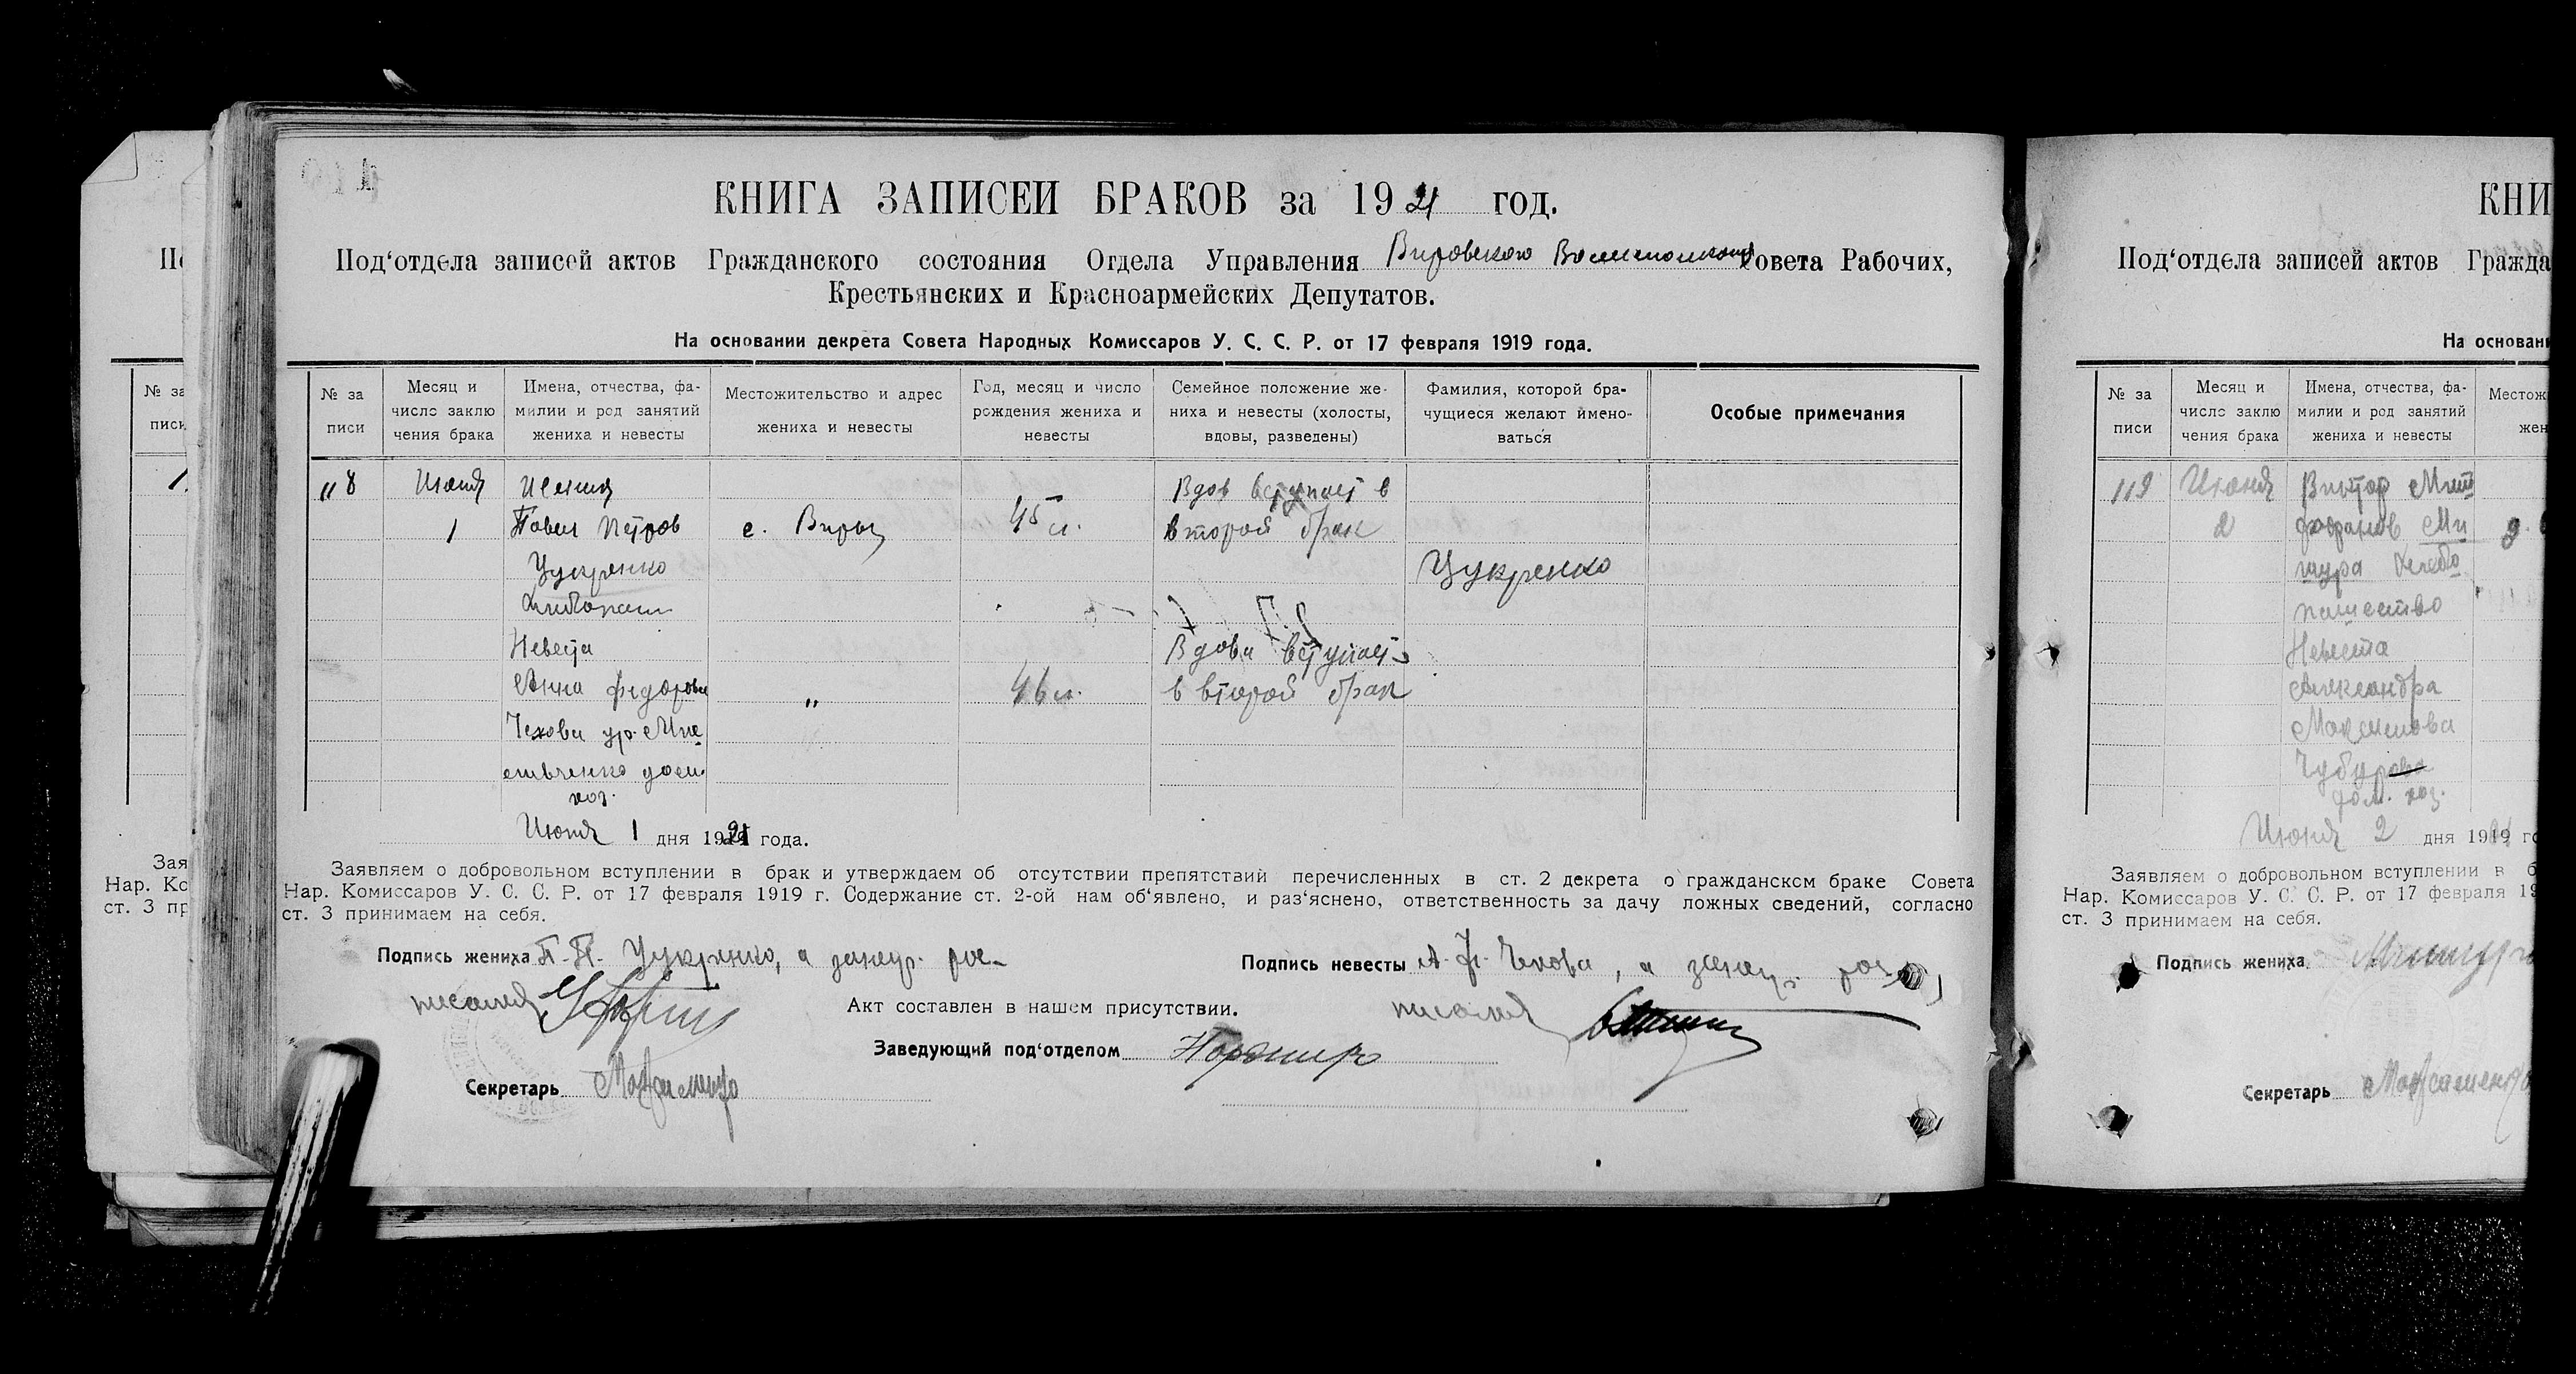 КНИГА ЗАПИСЕЙ БРАКОВ за 1921 год.
Под‘отдела записей актов Гражданского состояния Отдела Управления Вировского Совета Рабочих,
Крестьянских и Красноармейских Депутатов.
На основании декрета Совета Народных Комиссаров У. С. С. Р. от 17 февраля 1919 года.
№ за
писи
Месяц и
число заклю
чения брака
Имена, отчества, фа-
милии и род занятий
жениха и невесты
Местожительство и адрес
жениха и невесты
Год, месяц и число
рождения жениха и
невесты
Семейное положение же-
ниха и невесты (холосты,
вдовы, разведены)
Фамилия, которой бра-
чущиеся желают имено-
ваться
Особые примечания
118 Июня Жених Вдов вступает в
1 Павел Петров с. Виры 45 л. второй брак
Цукренко Цукренко
Хлебопаш
Невеста Вдова вступает
Анна Федорова " 46 л. в второй брак
Чехова ур. Мис
енко дом.
хоз.
Июня 1 дня 1921 года.
Заявляем о добровольном вступлении в брак и утверждаем об отсутствии препятствий перечисленных в ст. 2 декрета о гражданском браке Совета
Нар. Комиссаров У. С. С. Р. от 17 февраля 1919 г. Содержание ст. 2-ой нам об‘явлено, и раз‘яснено, ответственность за дачу ложных сведений, согласно
ст. 3 принимаем на себя.
Подпись жениха П. П. Цукренко, а за негр. рос-
писался
Подпись невесты А. Ф. Чехова, а за негр. рос
писался
Акт составлен в нашем присутствии.
Заведующий под‘отделом
Секретарь
По
№ за
писи
1
Зая
Нар. Ко
ст. 3 пр
КНИ
Под‘отдела записей актов Гражда
На основани
№ за
писи
Месяц и
число заклю
чения брака
Имена, отчества, фа-
милии и род занятий
жениха и невесты
Местож
жен
119 Июня Виктор Мит
2 рофанов Ми
шура Хлебо
пашество
Невеста
Александра
Максимова
Чубур
дом. хоз.
Июня 2 дня 1921 го
Заявляем о добровольном вступлении в б
Нар. Комиссаров У. С. С. Р. от 17 февраля 19
ст. 3 принимаем на себя.
Подпись жениха
Секретарь